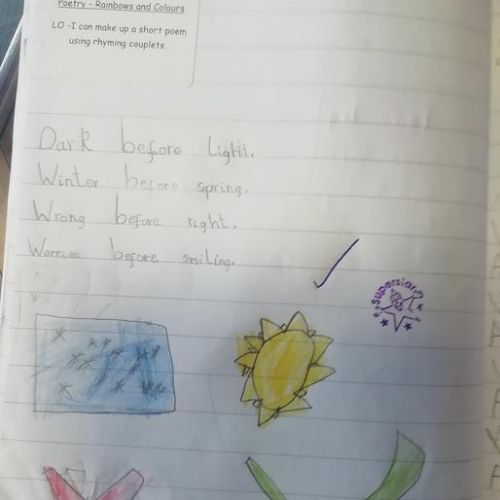 Poetry - Rainbows and Colours
LO -I can make up a short poem
using rhyming couplets
Dark before Light.
Winter before spring.
Wrong before right.
Worries before smiling.
Superstar